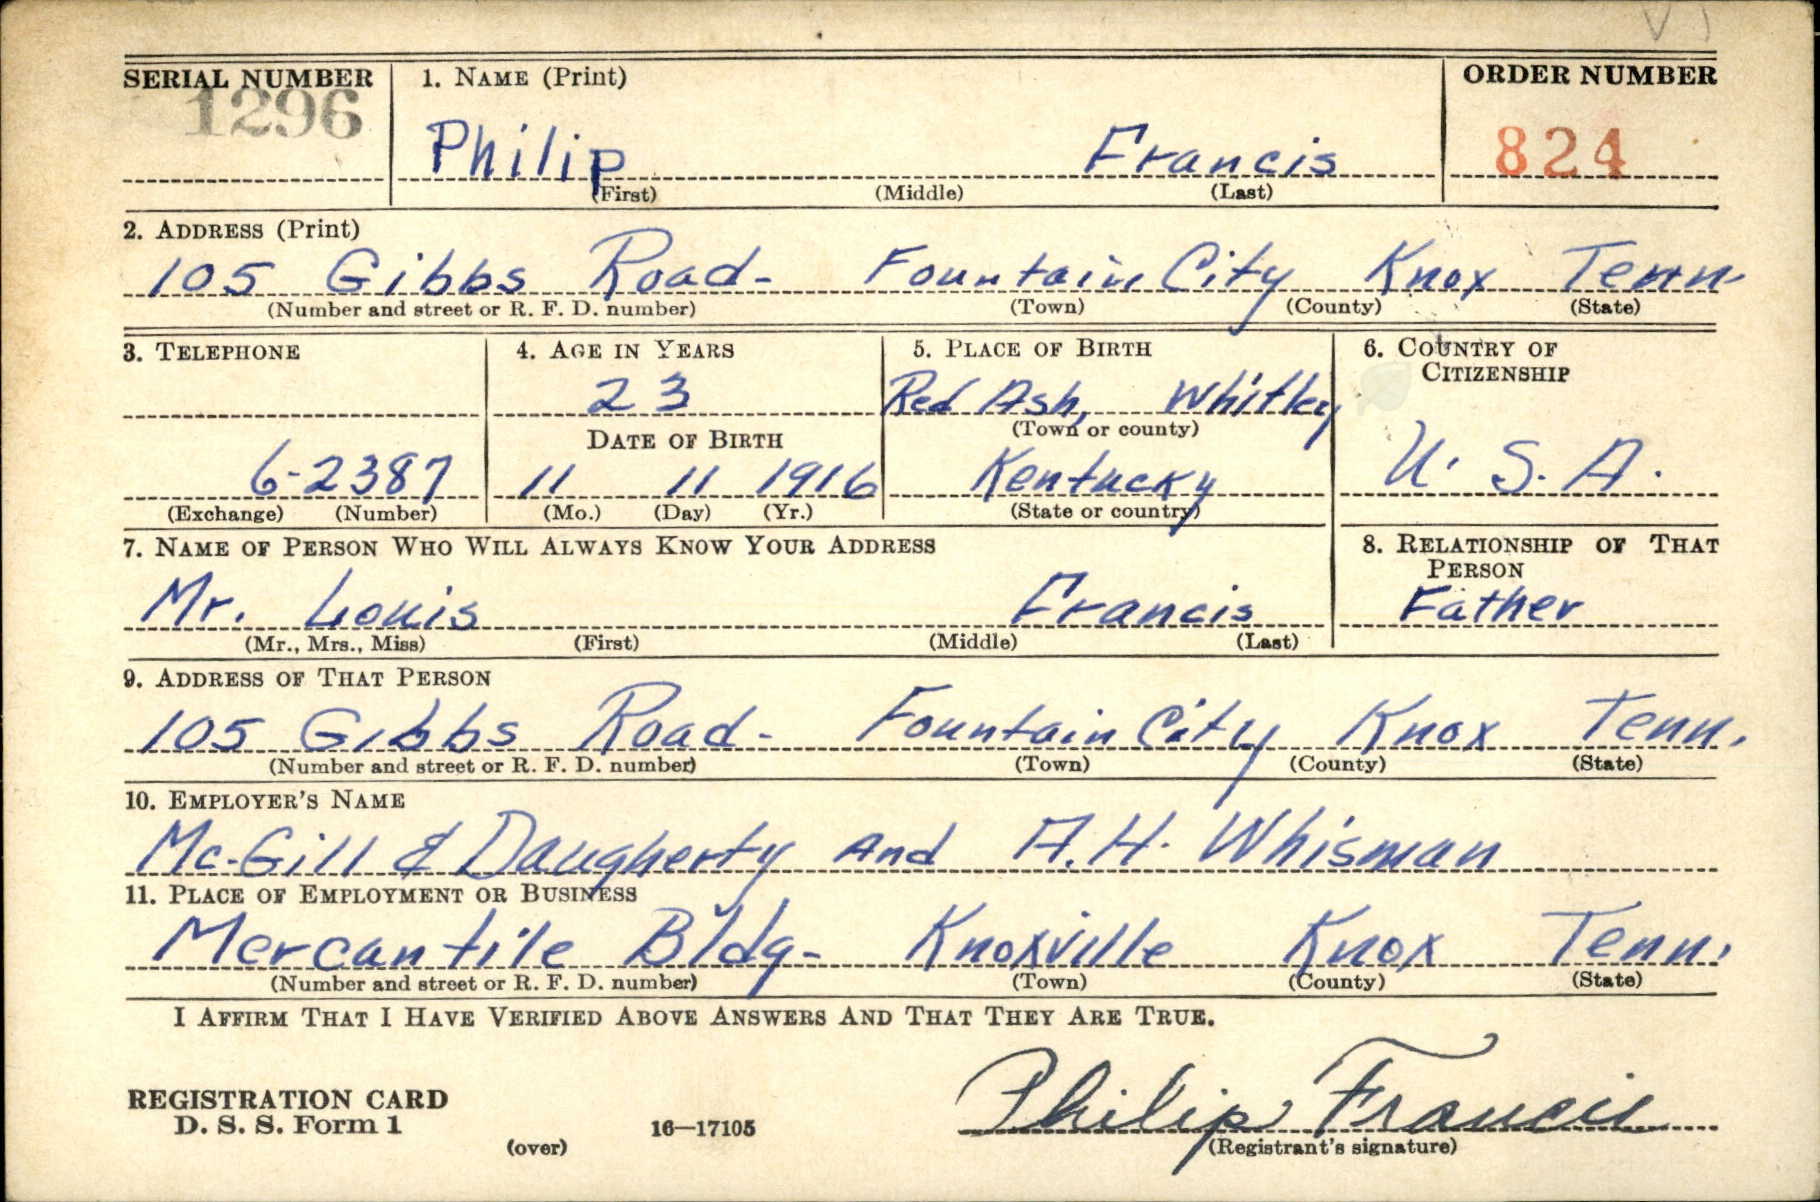 SERIAL NUMBER 1. NAME (Print) ORDER NUMBER
1296 Philip Francis 824
(First) (Middle) (Last)
2. ADDRESS (Print)
105 Gibbs Road- Fountain City Knox Tenn.
(Number and street or R. F. D. number) (Town) (County) (State)
3. TELEPHONE 4. AGE IN YEARS 5. PLACE OF BIRTH 6. COUNTRY OF
CITIZENSHIP
23 Red Ash, Whitley
(Town or county)
DATE OF BIRTH
6-2387 11 11 1916 Kentucky U. S. A.
(Exchange) (Number) (Mo.) (Day) (Yr.) (State or country)
7. NAME OF PERSON WHO WILL ALWAYS KNOW YOUR ADDRESS 8. RELATIONSHIP OF THAT
PERSON
Mr. Louis Francis Father
(Mr., Mrs., Miss) (First) (Middle) (Last)
9. ADDRESS OF THAT PERSON
105 Gibbs Road- Fountain City Knox Tenn.
(Number and street or R. F. D. number) (Town) (County) (State)
10. EMPLOYER'S NAME
Mc-Gill & Daugherty And A.H. Whisman
11. PLACE OF EMPLOYMENT OR BUSINESS
Mercantile Bldg- Knoxville Knox Tenn.
(Number and street or R. F. D. number) (Town) (County) (State)
I AFFIRM THAT I HAVE VERIFIED ABOVE ANSWERS AND THAT THEY ARE TRUE.
REGISTRATION CARD
D. S. S. Form 1
(over) 16—17105
Philip Francis
(Registrant's signature)